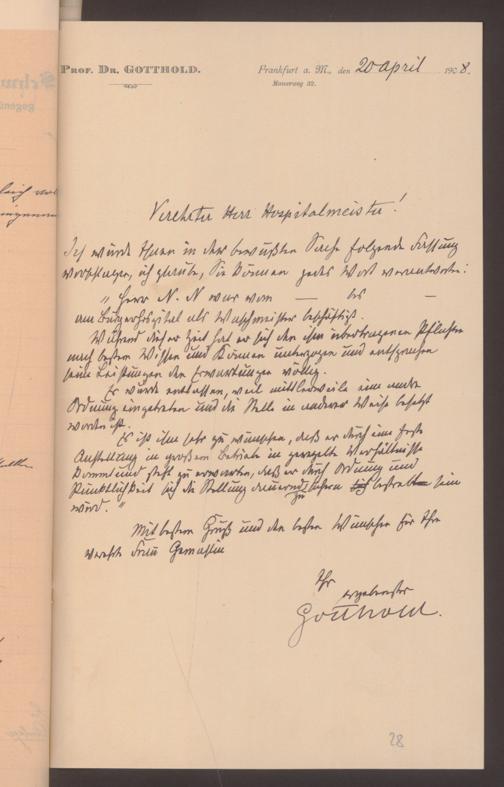 PROF. DR. GOTTHOLD.
Frankfurt a. M., den 20 April 1908.
Mauerweg 32.
Verehrter Herr Hospitalmeister!
Ich würde Ihnen in der bewußten Sache folgende Fassung
vorschlagen, ich glaube, Sie können jedes Wort verantworten:
„Herr N. N war vom — bis —
am Bürgerhospital als Waschmeister beschäftigt.
Während dieser Zeit hat er sich den ihm übertragenen Pflichten
nach bestem Wissen und Können unterzogen und entsprachen
seine Leistungen den Erwartungen völlig.
Er wurde entlassen, weil mittlerweile eine andre
Ordnung eingetreten und die Stelle in anderer Weise besetzt
worden ist.
Es ist ihm sehr zu wünschen, daß er durch eine feste
Anstellung in großem Betriebe in geregelte Verhältnisse
kommt und steht zu erwarten, daß er durch Ordnung und
Pünktlichkeit sich die Stellung dauernd zu sichern bestrebt sein
wird."
Mit bestem Gruß und den besten Wünschen für Ihre
verehrte Frau Gemahlin
Ihr
ergebenster
Gotthold.
28